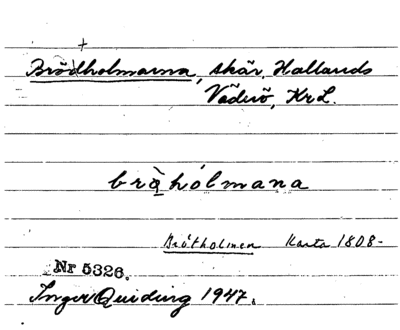 Brödholmarna, skär, Hallands
Väderö, Kr L.
brą̀hólmana
Brötholmen Karta 1808-
Nr 5326.
Inger Quiding 1947.